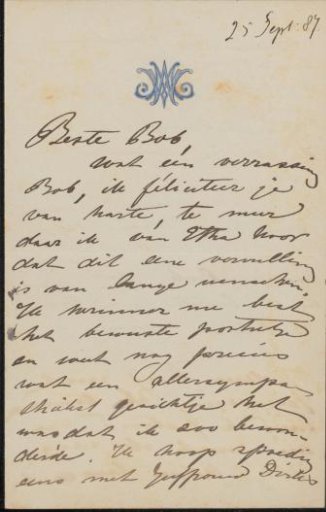 25 Sept. 87.
Beste Bob,
wat een verrassing
Bob, ik féliciteer je
van harte, te meer
daar ik van Etha hoor
dat dit eene vervulling
is van lange wenschen.
Ik herinner me best
het bewuste portretje
en weet nog precies
wat een allersympa-
thiekst gezichtje het
was dat ik zoo bewon-
derde. Ik hoop spoedig
eens met Juffrouw